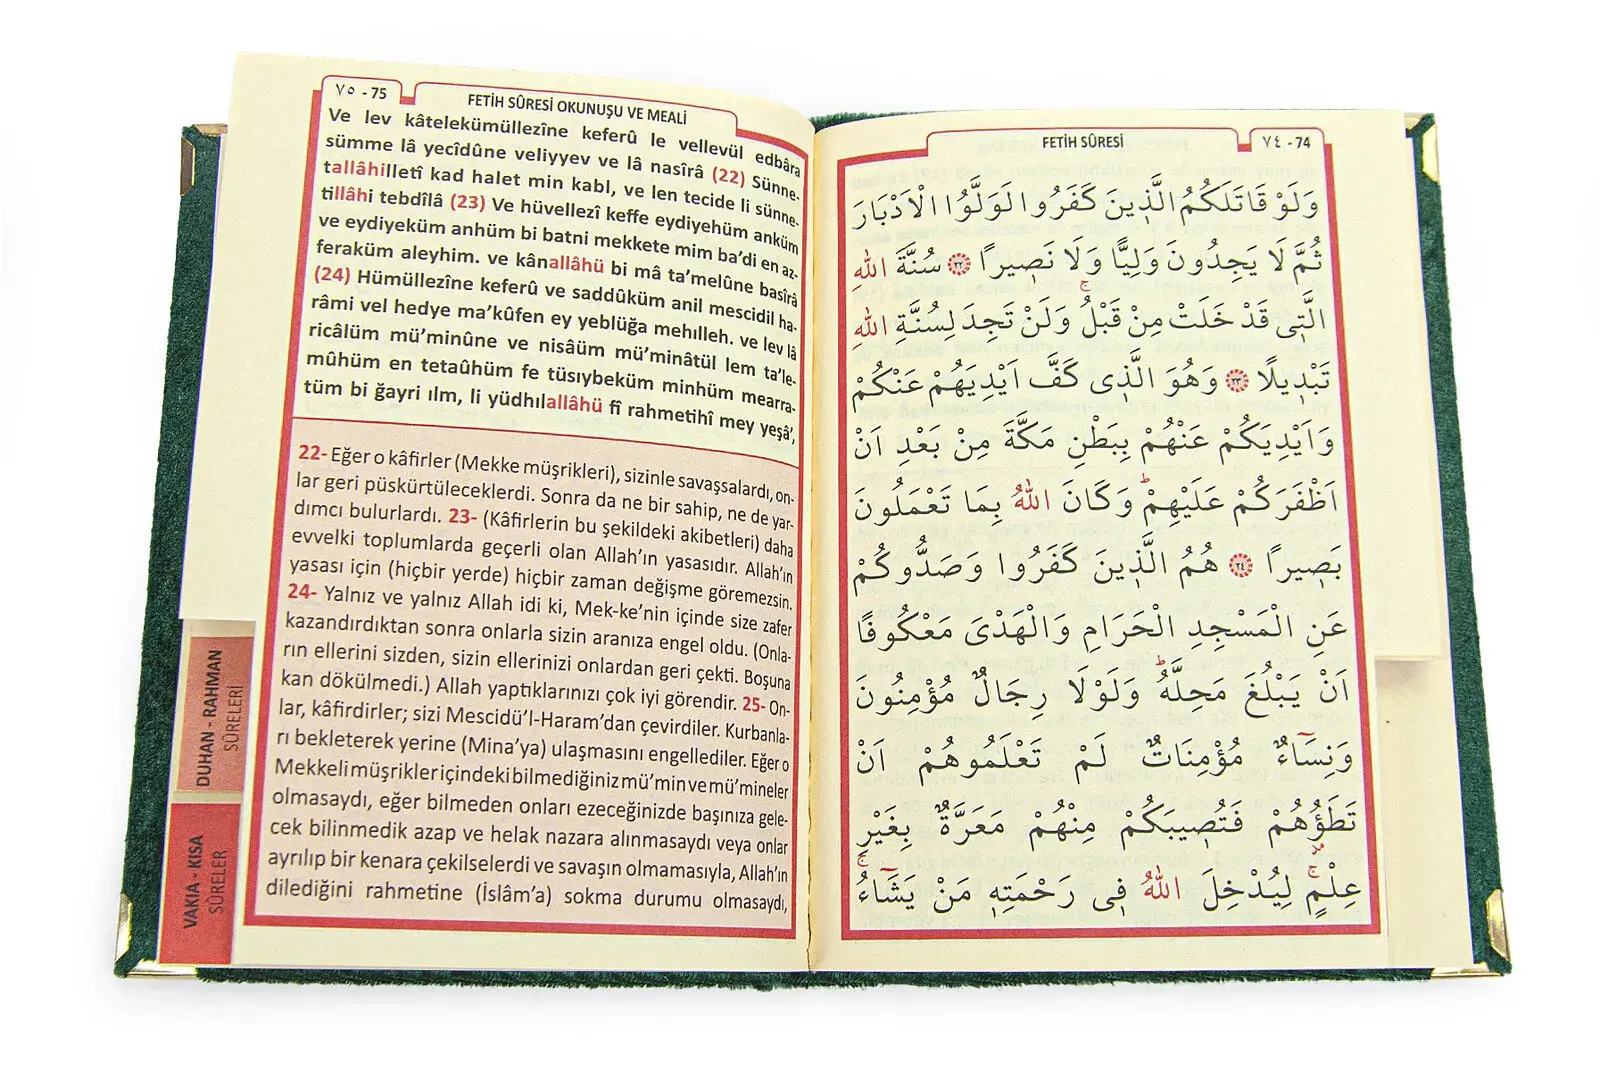 ٧٥ - 75
FETİH SÛRESİ OKUNUŞU VE MEALİ
Ve lev kâtelekümüllezîne keferû le vellevül edbâra
sümme lâ yecîdûne veliyyev ve lâ nasîrâ (22) Sünne-
tallâhilletî kad halet min kabl, ve len tecide li sünne-
tillâhi tebdîlâ (23) Ve hüvellezî keffe eydiyehüm anküm
ve eydiyeküm anhüm bi batni mekkete mim ba’di en az-
feraküm aleyhim. ve kânallâhü bi mâ ta’melûne basîrâ
(24) Hümüllezîne keferû ve saddûküm anil mescidil ha-
râmi vel hedye ma’kûfen ey yeblüğa mehılleh. ve lev lâ
ricâlüm mü’minûne ve nisâüm mü’minâtül lem ta’le-
mûhüm en tetaûhüm fe tüsıybeküm minhüm mearra-
tüm bi ğayri ılm, li yüdhılallâhü fî rahmetihî mey yeşâ’,
22- Eğer o kâfirler (Mekke müşrikleri), sizinle savaşsalardı, on-
lar geri püskürtüleceklerdi. Sonra da ne bir sahip, ne de yar-
dımcı bulurlardı. 23- (Kâfirlerin bu şekildeki akibetleri) daha
evvelki toplumlarda geçerli olan Allah’ın yasasıdır. Allah’ın
yasası için (hiçbir yerde) hiçbir zaman değişme göremezsin.
24- Yalnız ve yalnız Allah idi ki, Mek-ke’nin içinde size zafer
kazandırdıktan sonra onlarla sizin aranıza engel oldu. (Onla-
rın ellerini sizden, sizin ellerinizi onlardan geri çekti. Boşuna
kan dökülmedi.) Allah yaptıklarınızı çok iyi görendir. 25- On-
lar, kâfirdirler; sizi Mescidü’l-Haram’dan çevirdiler. Kurbanla-
rı bekleterek yerine (Mina’ya) ulaşmasını engellediler. Eğer o
Mekkeli müşrikler içindeki bilmediğiniz mü’min ve mü’mineler
olmasaydı, eğer bilmeden onları ezeceğinizde başınıza gele-
cek bilinmedik azap ve helak nazara alınmasaydı veya onlar
ayrılıp bir kenara çekilselerdi ve savaşın olmamasıyla, Allah’ın
dilediğini rahmetine (İslâm’a) sokma durumu olmasaydı,
DUHAN - RAHMAN
SÛRELERİ
VAKIA - KISA
SÛRELER
FETİH SÛRESİ
٧٤ - 74
وَلَوْ قَاتَلَكُمُ الَّذ۪ينَ كَفَرُوا لَوَلَّوُا الْاَدْبَارَ
ثُمَّ لَا يَجِدُونَ وَلِيًّا وَلَا نَص۪يرًا ٢٢ سُنَّةَ اللّٰهِ
الَّت۪ى قَدْ خَلَتْ مِنْ قَبْلُۚ وَلَنْ تَجِدَ لِسُنَّةِ اللّٰهِ
تَبْد۪يلًا ٢٣ وَهُوَ الَّذ۪ى كَفَّ اَيْدِيَهُمْ عَنْكُمْ
وَاَيْدِيَكُمْ عَنْهُمْ بِبَطْنِ مَكَّةَ مِنْ بَعْدِ اَنْ
اَظْفَرَكُمْ عَلَيْهِمْؕ وَكَانَ اللّٰهُ بِمَا تَعْمَلُونَ
بَص۪يرًا ٢٤ هُمُ الَّذ۪ينَ كَفَرُوا وَصَدُّوكُمْ
عَنِ الْمَسْجِدِ الْحَرَامِ وَالْهَدْىَ مَعْكُوفًا
اَنْ يَبْلُغَ مَحِلَّهُؕ وَلَوْلَا رِجَالٌ مُؤْمِنُونَ
وَنِسَٓاءٌ مُؤْمِنَاتٌ لَمْ تَعْلَمُوهُمْ اَنْ
تَطَؤُ۫هُمْ فَتُص۪يبَكُمْ مِنْهُمْ مَعَرَّةٌ بِغَيْرِ
عِلْمٍۚ لِيُدْخِلَ اللّٰهُ ف۪ى رَحْمَتِه۪ مَنْ يَشَٓاءُۚ